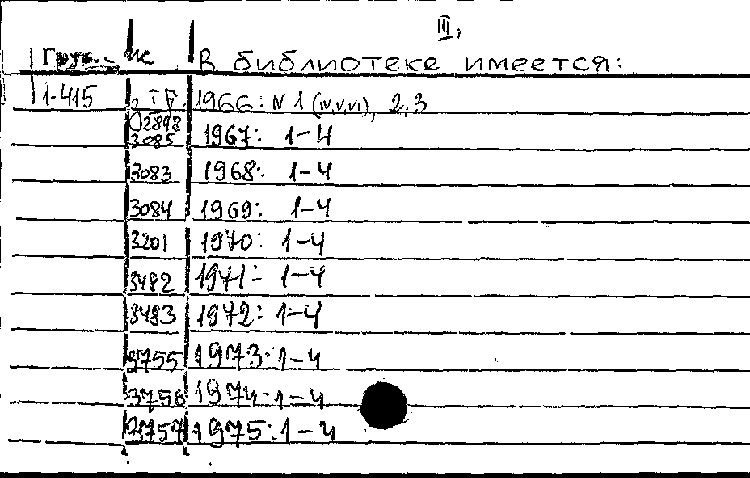 III.
В библиотеке имеется:
1-415 1966: N 1 (IV, V, VI), 2, 3
02898
3085 1967: 1-4
3083 1968: 1-4
3084 1969: 1-4
3201 1970: 1-4
3482 1971- 1-4
3483 1972: 1-4
3755 1973: 1-4
3756 1974: 1-4
3757 1975: 1-4